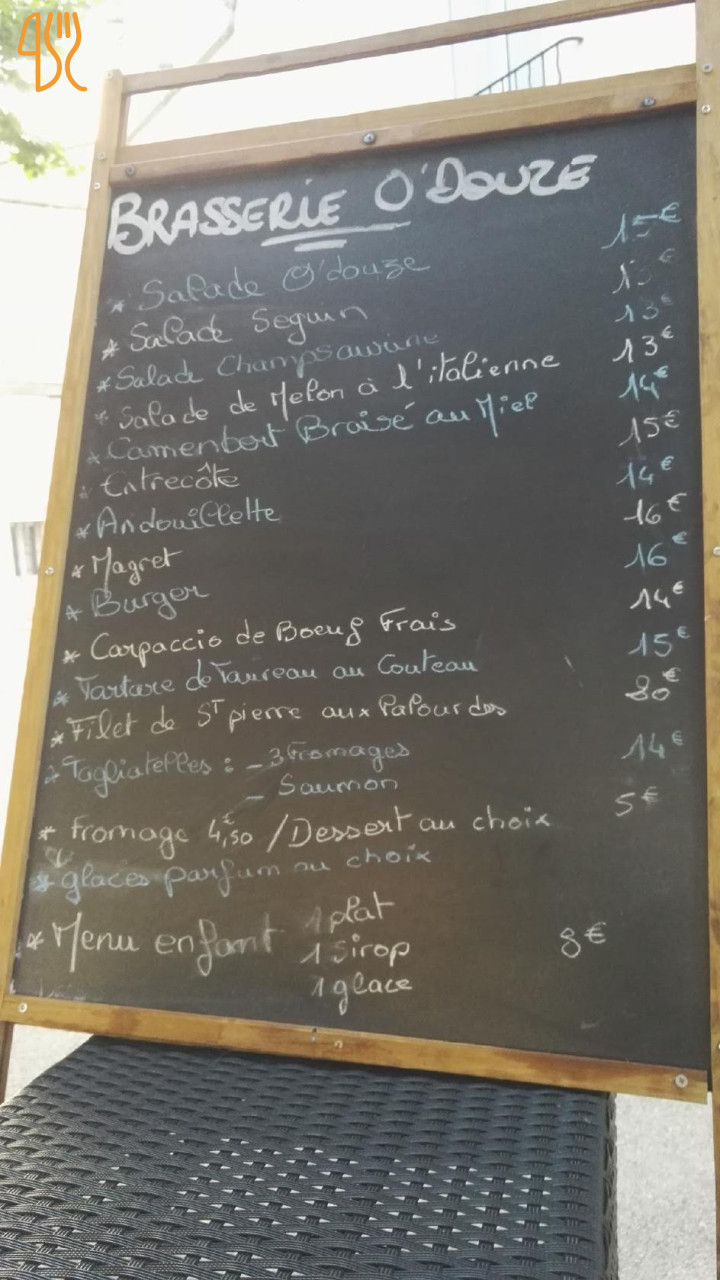 BRASSERIE O'DOUZE
* Salade O'douze 15€
* Salade Seguin €
* Salade Champsaurine 13€
* Salade de Melon à l'italienne 13€
* Camembert Braisé au Miel 14€
* Entrecôte 15€
* Andouillette 14€
* Magret 16€
* Burger 16€
* Carpaccio de Boeuf Frais 14€
* Tartare de Taureau au Couteau 15€
* Filet de ST pierre aux Palourdes €
* Tagliatelles : - 3 Fromages 14€
- Saumon
* Fromage 4,50€ / Dessert au choix 5€
* glaces parfum au choix
* Menu enfant 1 plat
1 Sirop 8€
1 glace